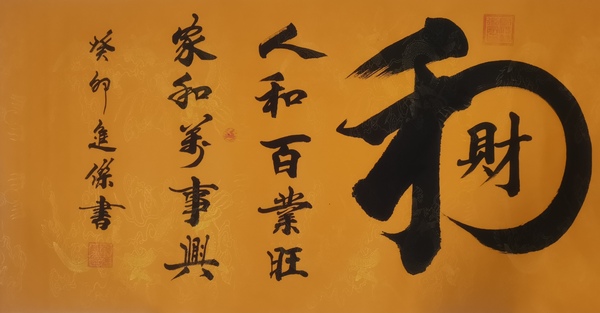 和
財
人和百業旺
家和萬事興
癸卯進傑書